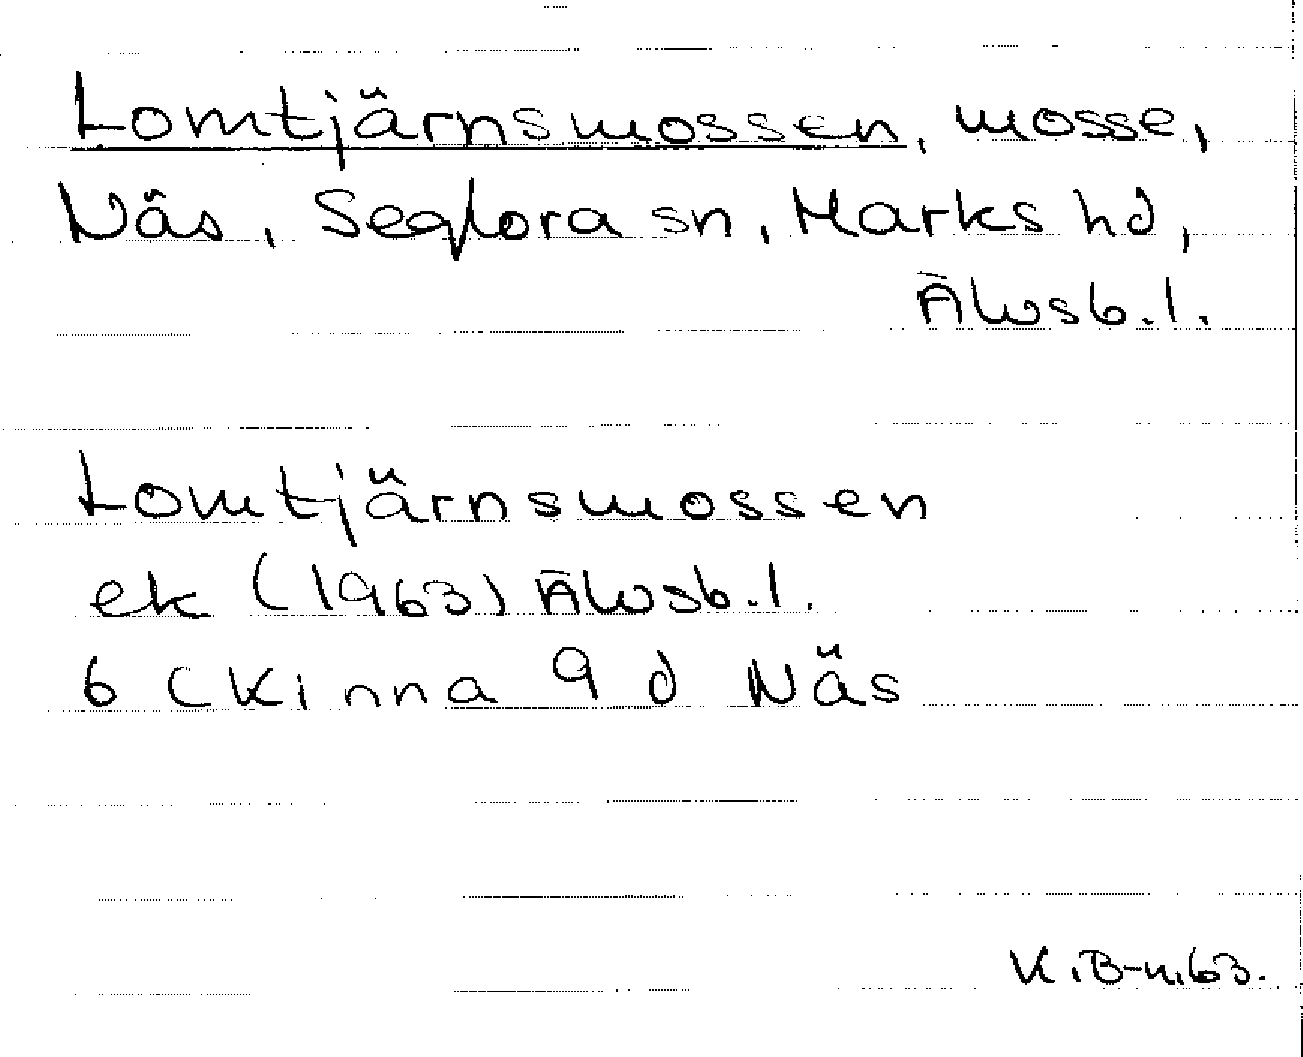 Lomtjärnsmossen, mosse,
Näs, Seglora sn, Marks hd,
Älvsb.l.
Lomtjärnsmossen
ek (1963) Älvsb.l.
6 C Kinna 9 d Näs
K.B-n.63.